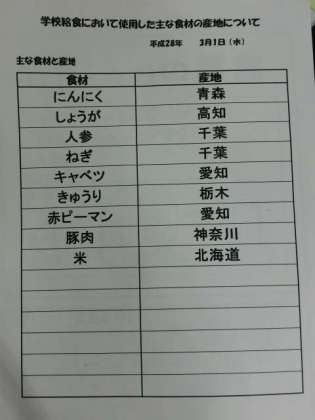 学校給食において使用した主な食材の産地について
平成28年 3月1日（水）
主な食材と産地
食材 産地
にんにく 青森
しょうが 高知
人参 千葉
ねぎ 千葉
キャベツ 愛知
きゅうり 栃木
赤ピーマン 愛知
豚肉 神奈川
米 北海道